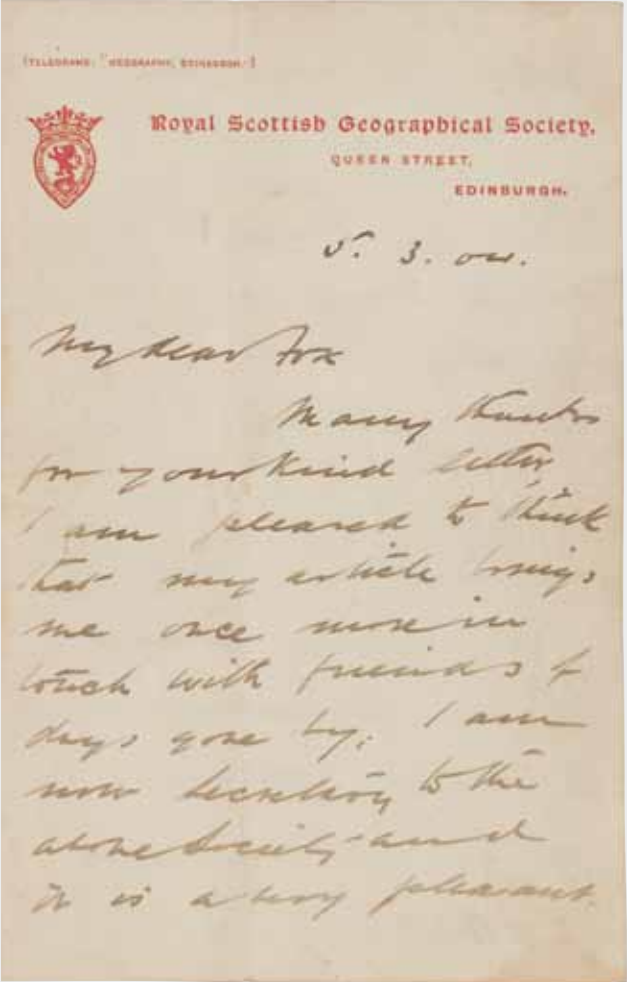 (TELEGRAMS: "GEOGRAPHY, EDINBURGH.")
Royal Scottish Geographical Society,
QUEEN STREET,
EDINBURGH.
5. 3. 04.
My dear Fox
Many thanks
for your kind letter
I am pleased to think
that my article brings
me once more in
touch with friends of
days gone by. I am
now Secretary to the
above Society and
it is a very pleasant